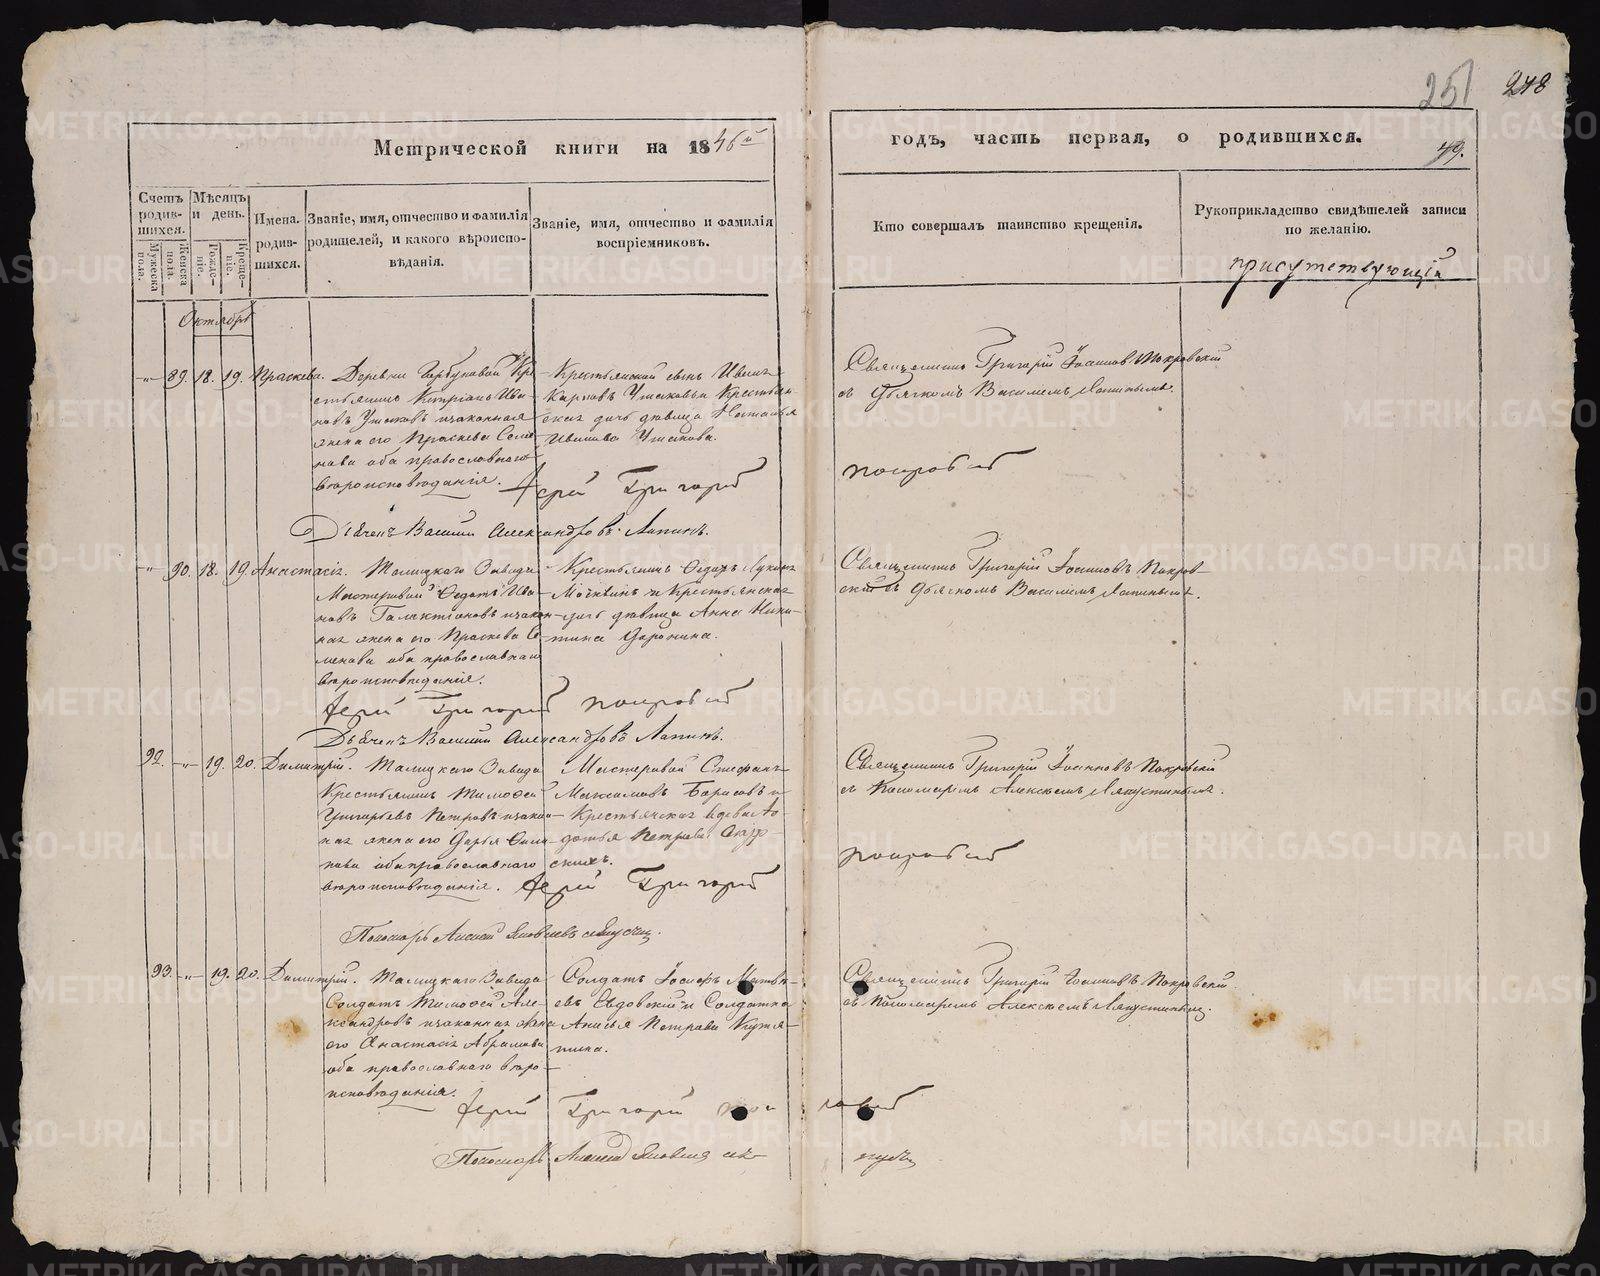 251 248
Метрической книги на 1846й
годъ, часть первая, о родившихся.
49.
Счетъ родив-шихся.
Мужеска пола.
Женска пола.
Мѣсяцъ и день.
Рожде-ніе.
Креще-ніе.
Имена родив-шихся.
Званіе, имя, отчество и фамилія
родителей, и какого вѣроиспо-
вѣданія.
Званіе, имя, отчество и фамилія
воспріемниковъ.
Кто совершалъ таинство крещенія.
Рукоприкладство свидѣтелей записи
по желанію.
присутствующій
Октябрь
89. 18. 19. Праскева.
Деревни Кре
стьянинъ Ива
новъ Ушаковъ и законная
жена его Праскева Семе
нова оба православнаго
вѣроисповѣданія.
Крестьянскій сынъ Иванъ
Карповъ Ушаковъ и Крестьян
ская дочь дѣвица Наталья
Иванова Ушакова.
Священникъ Григорій Іоанновъ Покровскій
съ Дьячкомъ Василіемъ Лапинымъ.
Іерей Григорій Покровскій
Дьячекъ Василій Александровъ Лапинъ.
90. 18. 19. Анастасія.
Талицкаго Завода
Мастеровой Федотъ Ива
новъ Галактіоновъ и закон
ная жена его Праскева Се
менова оба православнаго
вѣроисповѣданія.
Крестьянинъ Федоръ Лукинъ
и Крестьянская
дочь дѣвица Анна Ники
тина Доронина.
Священникъ Григорій Іоанновъ Покров
скій съ Дьячкомъ Василіемъ Лапинымъ.
Іерей Григорій Покровскій
Дьячекъ Василій Александровъ Лапинъ.
92. 19. 20. Димитрій.
Талицкаго Завода
Крестьянинъ Тимофей
Григорьевъ Петровъ и закон
ная жена его Дарья
оба православнаго
вѣроисповѣданія.
Мастеровой Стефанъ
Максимовъ Борисовъ и
Крестьянская вдова Ав
дотья Петрова
Священникъ Григорій Іоанновъ Покровскій
съ Пономаремъ Алексѣемъ Ляпустинымъ.
Іерей Григорій Покровскій
Пономарь Алексей Яковлевъ
93. 19. 20. Димитрій.
Талицкаго Завода
Солдатъ Тимофей Але
ксандровъ и законная жена
его Анастасія Абрамова
оба православнаго вѣро
исповѣданія.
Солдатъ Іосифъ Матвѣ
евъ и Солдатка
Анисья Петрова
Священникъ Григорій Іоанновъ Покровскій
съ Пономаремъ Алексѣемъ Ляпустинымъ.
Іерей Григорій Покровскій
Пономарь Алексей Яковлевъ
METRIKI.GASO-URAL.RU